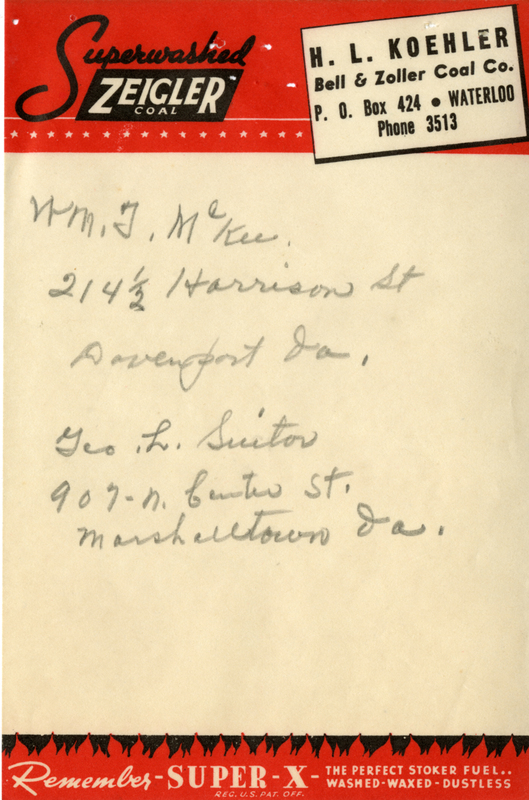 Superwashed
ZEIGLER
COAL
H. L. KOEHLER
Bell & Zoller Coal Co.
P. O. Box 424 • WATERLOO
Phone 3513
WM. T. McKee.
214½ Harrison St
Davenport Ia.
Geo. L. Suitor
907-N. Center St.
Marshalltown Ia.
Remember-SUPER-X-
REG. U.S. PAT. OFF.
THE PERFECT STOKER FUEL..
WASHED-WAXED-DUSTLESS